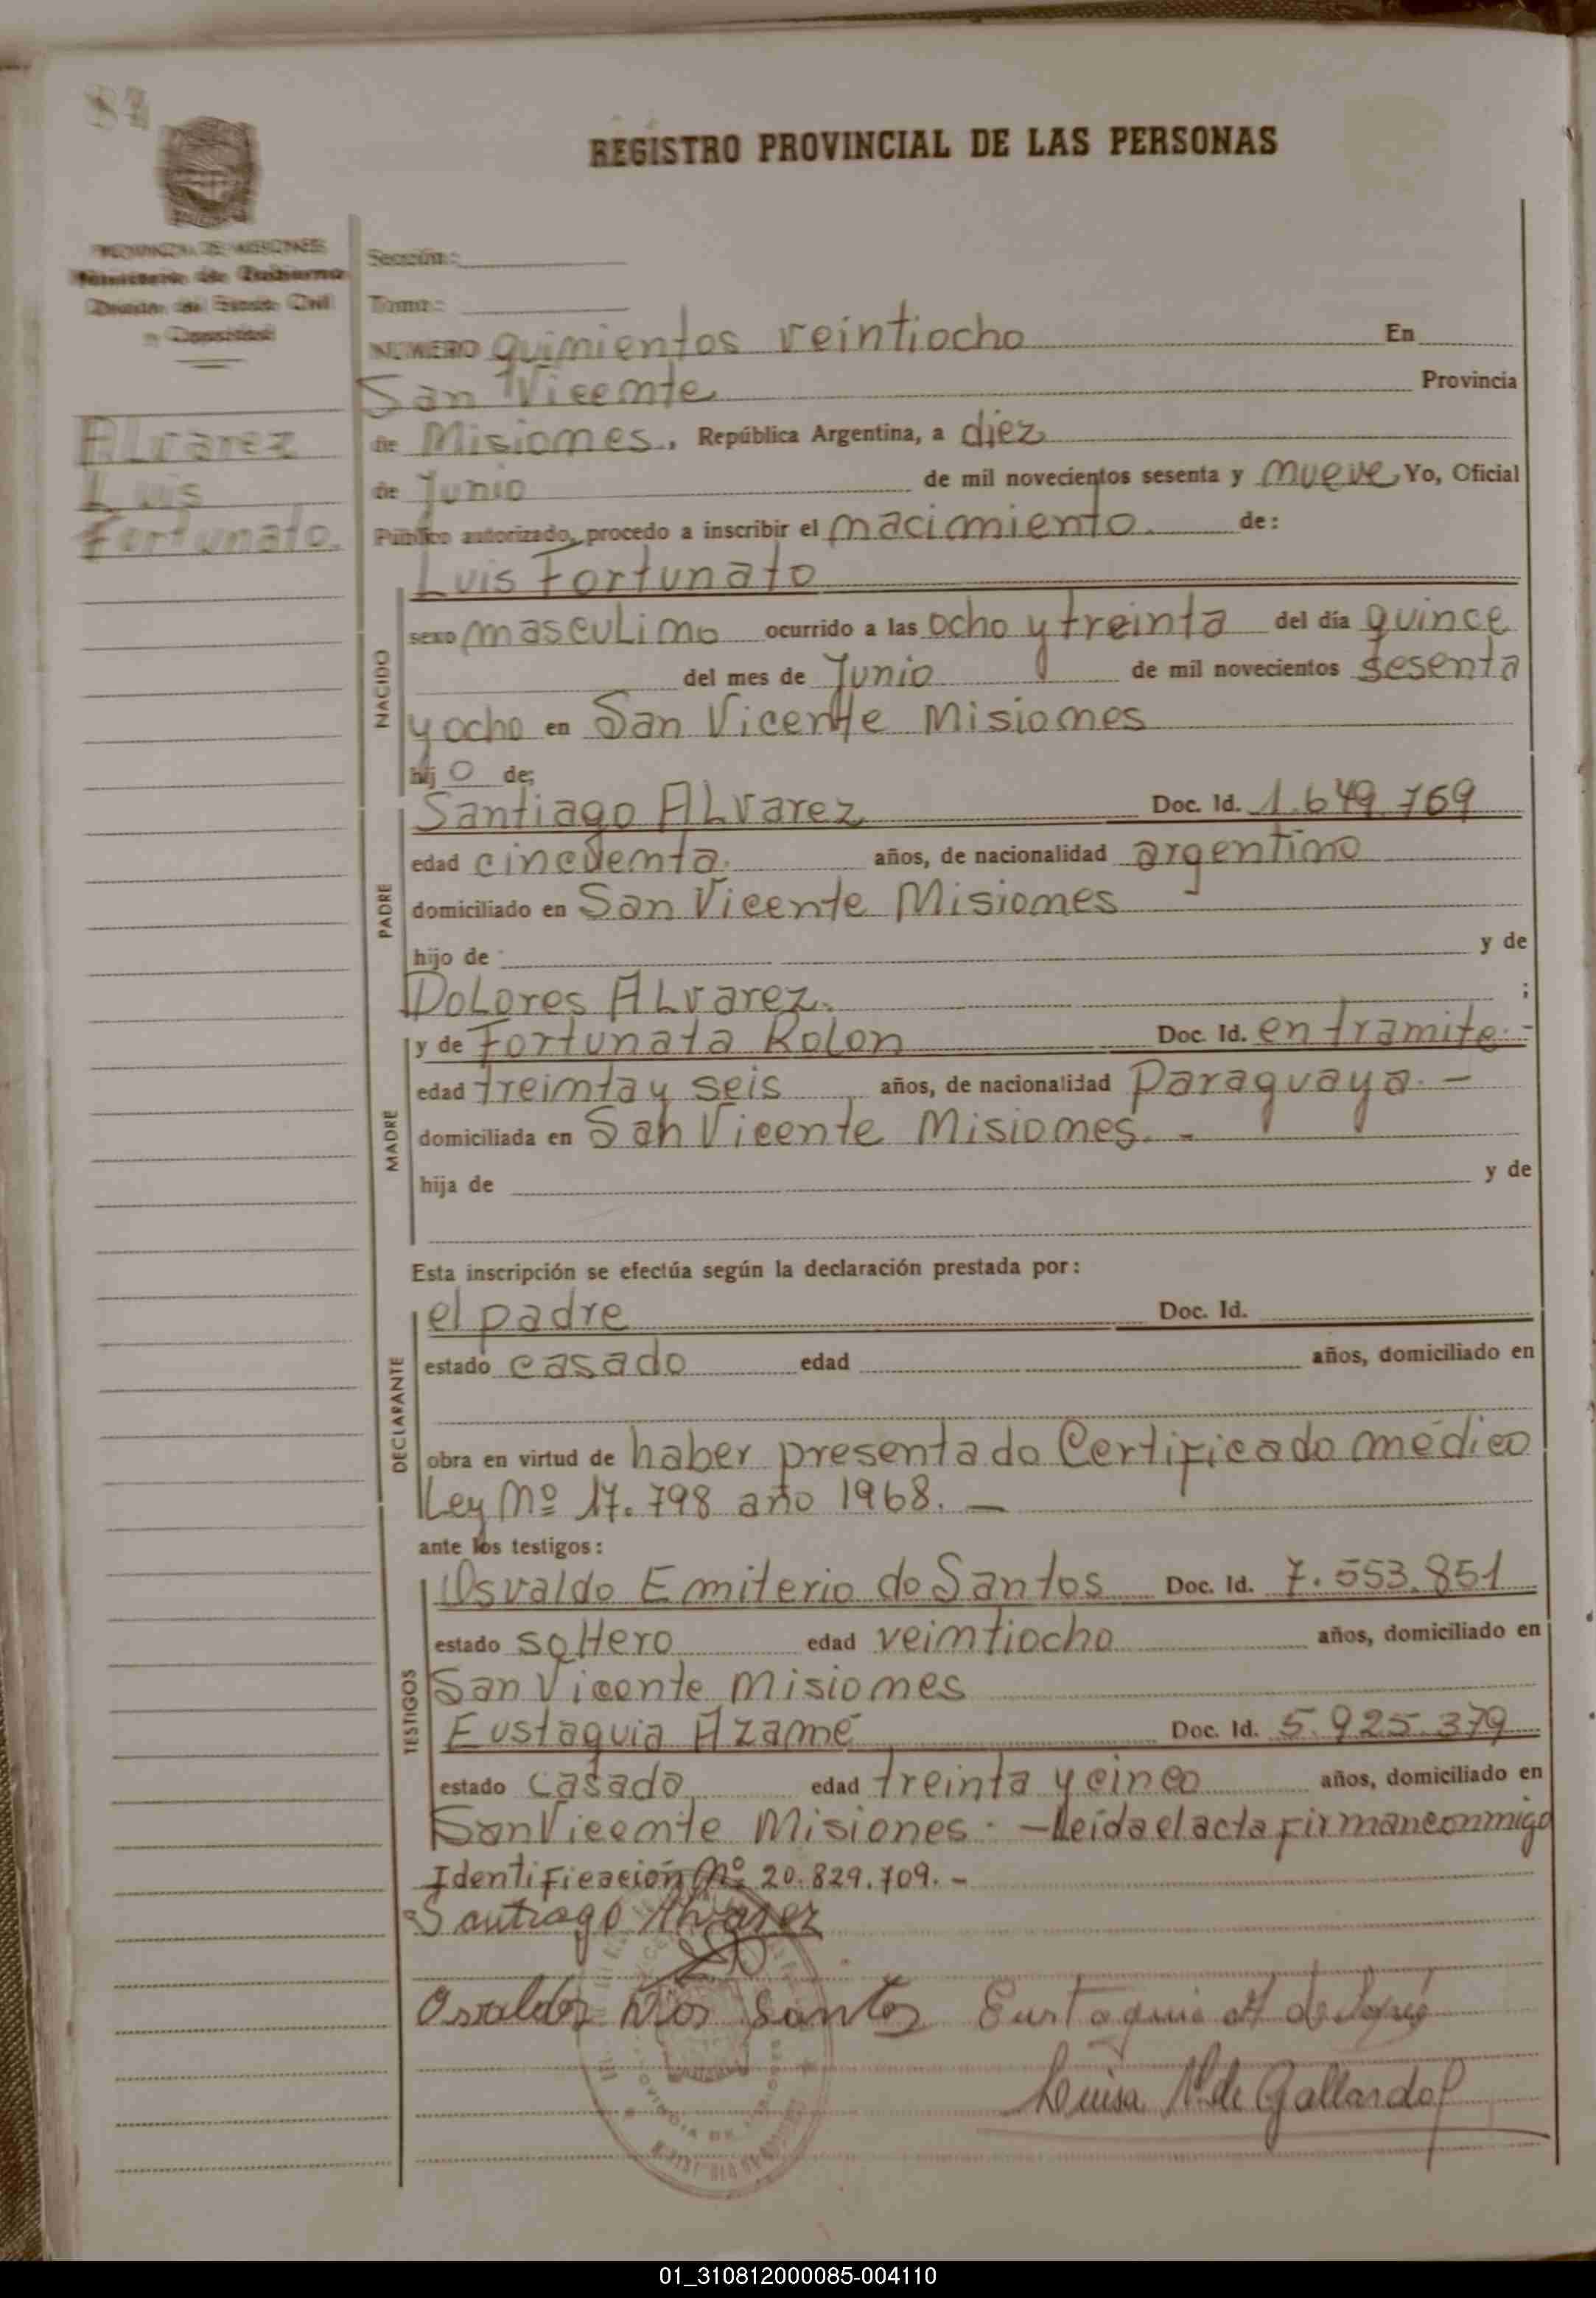 87
REGISTRO PROVINCIAL DE LAS PERSONAS
PROVINCIA DE MISIONES
Ministerio de Gobierno
Sección:
Tomo:
NUMERO quinientos veintiocho En
San Vicente Provincia
de Misiones. República Argentina, a diez
de Junio de mil novecientos sesenta y nueve Yo, Oficial
Público autorizado, procedo a inscribir el nacimiento. de:
Alvarez
Luis
Fortunato.
Luis Fortunato
NACIDO
sexo masculino ocurrido a las ocho y treinta del día quince
del mes de Junio de mil novecientos sesenta
y ocho en San Vicente Misiones
hij o de:
PADRE
Santiago Alvarez Doc. Id. 1.649.769
edad cincuenta. años, de nacionalidad argentino
domiciliado en San Vicente Misiones
hijo de y de
Dolores Alvarez. ;
MADRE
y de Fortunata Rolon Doc. Id. en tramite. -
edad treinta y seis años, de nacionalidad Paraguaya. -
domiciliada en San Vicente Misiones. -
hija de y de
Esta inscripción se efectúa según la declaración prestada por:
DECLARANTE
el padre Doc. Id.
estado casado edad años, domiciliado en
obra en virtud de haber presentado Certificado médico
Ley Nº 17.798 año 1968. -
ante los testigos:
TESTIGOS
Osvaldo Emiterio do Santos Doc. Id. 7.553.851
estado soltero edad veintiocho años, domiciliado en
San Vicente Misiones
Eustaquia Azame Doc. Id. 5.925.379
estado casado edad treinta y cinco años, domiciliado en
San Vicente Misiones. - Leída el acta firman conmigo
Identificación Nº 20.829.709. -
Santiago Alvarez
Osvaldo Dos Santos Eustaquia de
Luisa de Gallardo
01_310812000085-004110